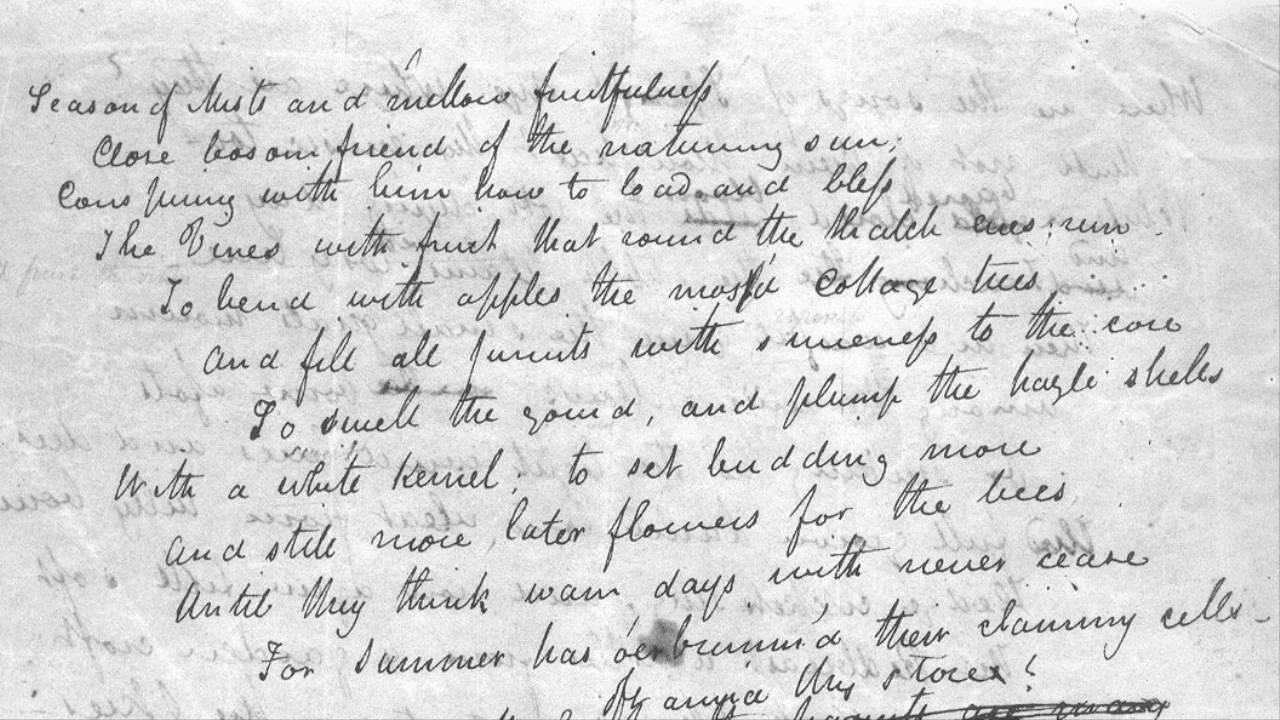 Season of Mists and mellow fruitfulness
Close bosom friend of the naturring sun;
Conspiring with him how to load and bless
The Vines with fruit that round the thatch eves run
To bend with apples the moss'd Cottage trees
And fill all furuits with sweeness to the core
To swell the gourd, and plump the hazle shells
With a white kernel; to set budding more
And still more later flowers for the bees
Until they think warm days with never cease
For Summer has o'erbrimm'd their clammy cells—
thy stores?